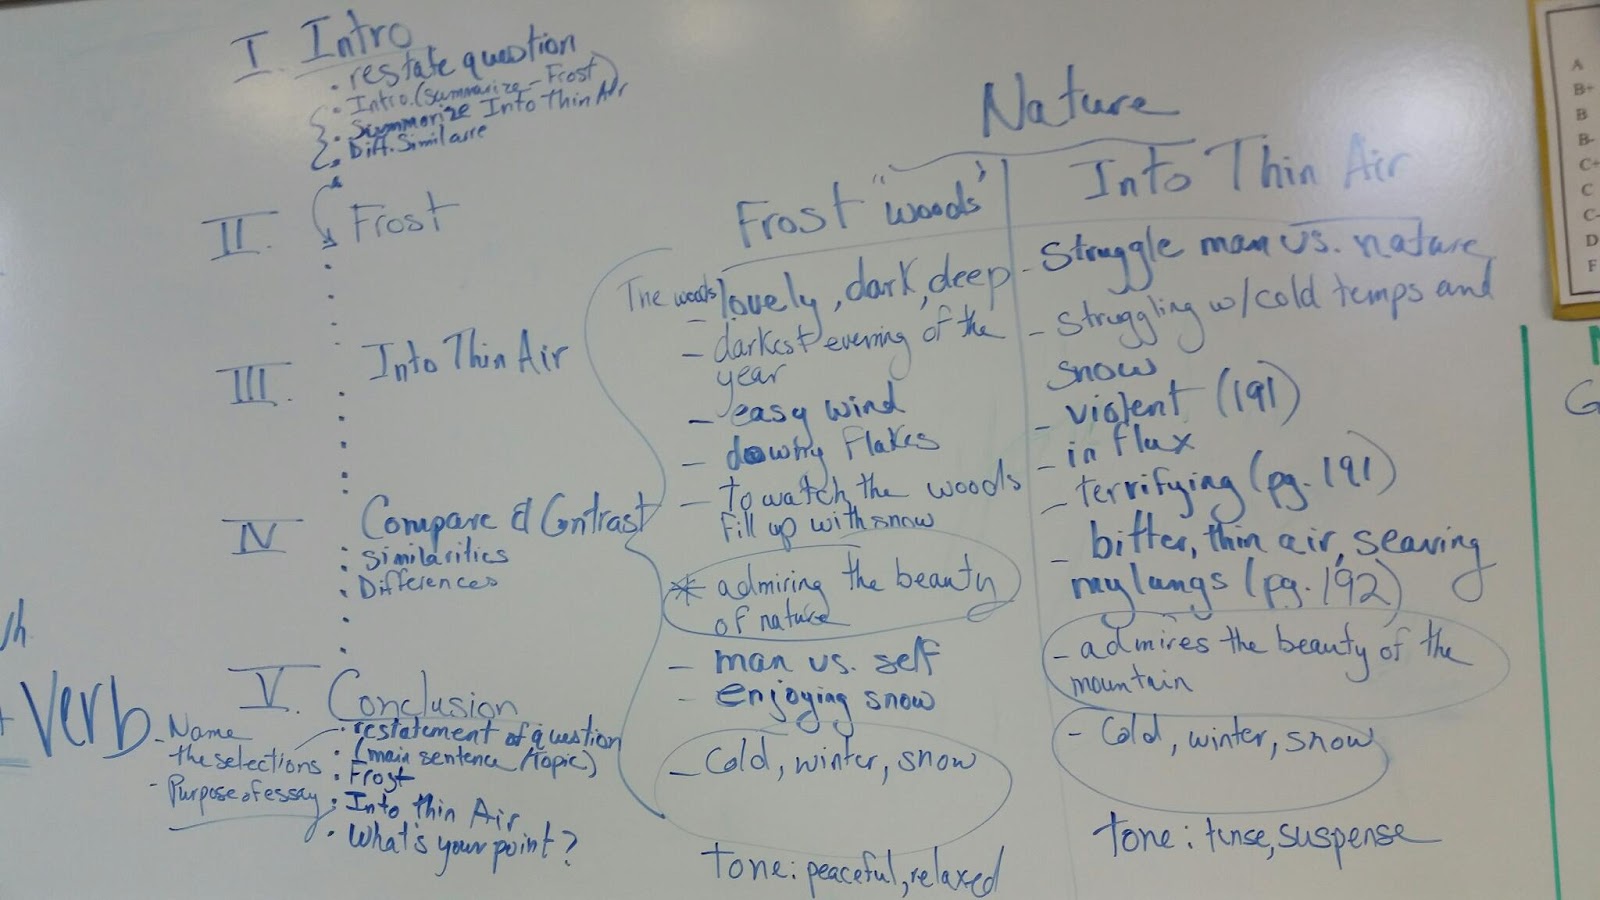 I. Intro
· restate question
· Intro. (summarize - Frost)
· Summarize Into Thin Air
· Diff. Similare
II. Frost
III. Into Thin Air
IV Compare & Contrast
· Similarities
· Differences
V. Conclusion
· restatement of question
· (main sentence/Topic)
· Frost
· Into thin Air
· What's your point?
Verb
- Name
the selections
- Purpose of essay
Nature
Frost "woods"
The woods lovely, dark, deep
- darkest evening of the
year
- easy wind
- downy flakes
- to watch the woods
fill up with snow
* admiring the beauty
of nature
- man vs. self
- enjoying snow
- Cold, winter, snow
tone: peaceful, relaxed
Into Thin Air
- Struggle man vs. nature
- struggling w/cold temps and
snow
- violent (191)
- in flux
- terrifying (pg. 191)
- bitter, thin air, searing
my lungs (pg. 192)
- admires the beauty of the
mountain
- Cold, winter, snow
tone: tense, suspense
A
B+
B
B-
C+
C
C-
D
F